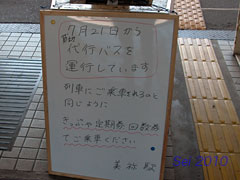 7月21日から
代行バスを
運行しています
列車にご乗車されるのと
同じように
きっぷや定期券 回数券
でご乗車ください
美祢駅